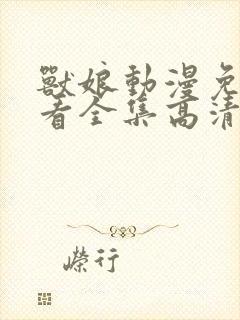 獸娘動漫免
看全集高清
嶸行